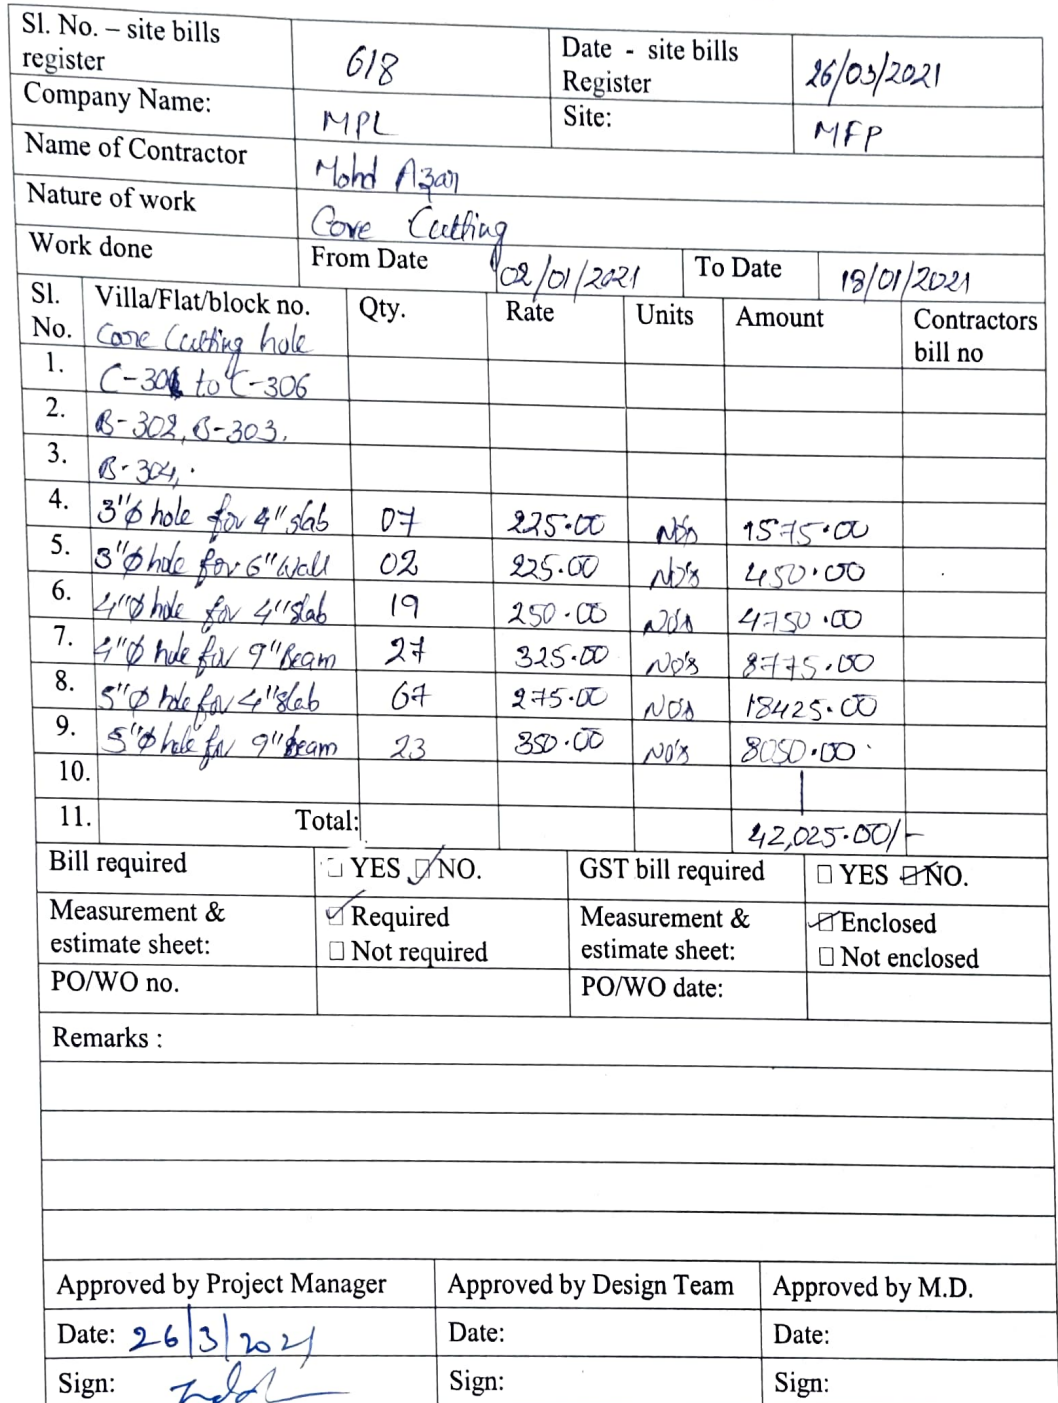 Sl. No. – site bills register 618 Date - site bills Register 26/03/2021
Company Name: MPL Site: MFP
Name of Contractor Mohd Azan
Nature of work Core Cutting
Work done From Date 02/01/2021 To Date 18/01/2021
Sl. No. Villa/Flat/block no. Qty. Rate Units Amount Contractors bill no
Core Cutting hole
1. C-301 to C-306
2. B-302, B-303,
3. B-304,.
4. 3"φ hole for 4" slab 07 225.00 No's 1575.00
5. 3"φ hole for 6" Wall 02 225.00 No's 450.00
6. 4"φ hole for 4" slab 19 250.00 No's 4750.00
7. 4"φ hole for 9" Beam 27 325.00 No's 8775.00
8. 5"φ hole for 4" slab 67 275.00 No's 18425.00
9. 5"φ hole for 9" Beam 23 350.00 No's 8050.00
10.
11. Total: 42,025.00/-
Bill required ☐ YES ☑ NO. GST bill required ☐ YES ☑ NO.
Measurement & estimate sheet: ☑ Required Measurement & estimate sheet: ☑ Enclosed
☐ Not required ☐ Not enclosed
PO/WO no. PO/WO date:
Remarks :
Approved by Project Manager Approved by Design Team Approved by M.D.
Date: 26/3/2021 Date: Date:
Sign: Sign: Sign: